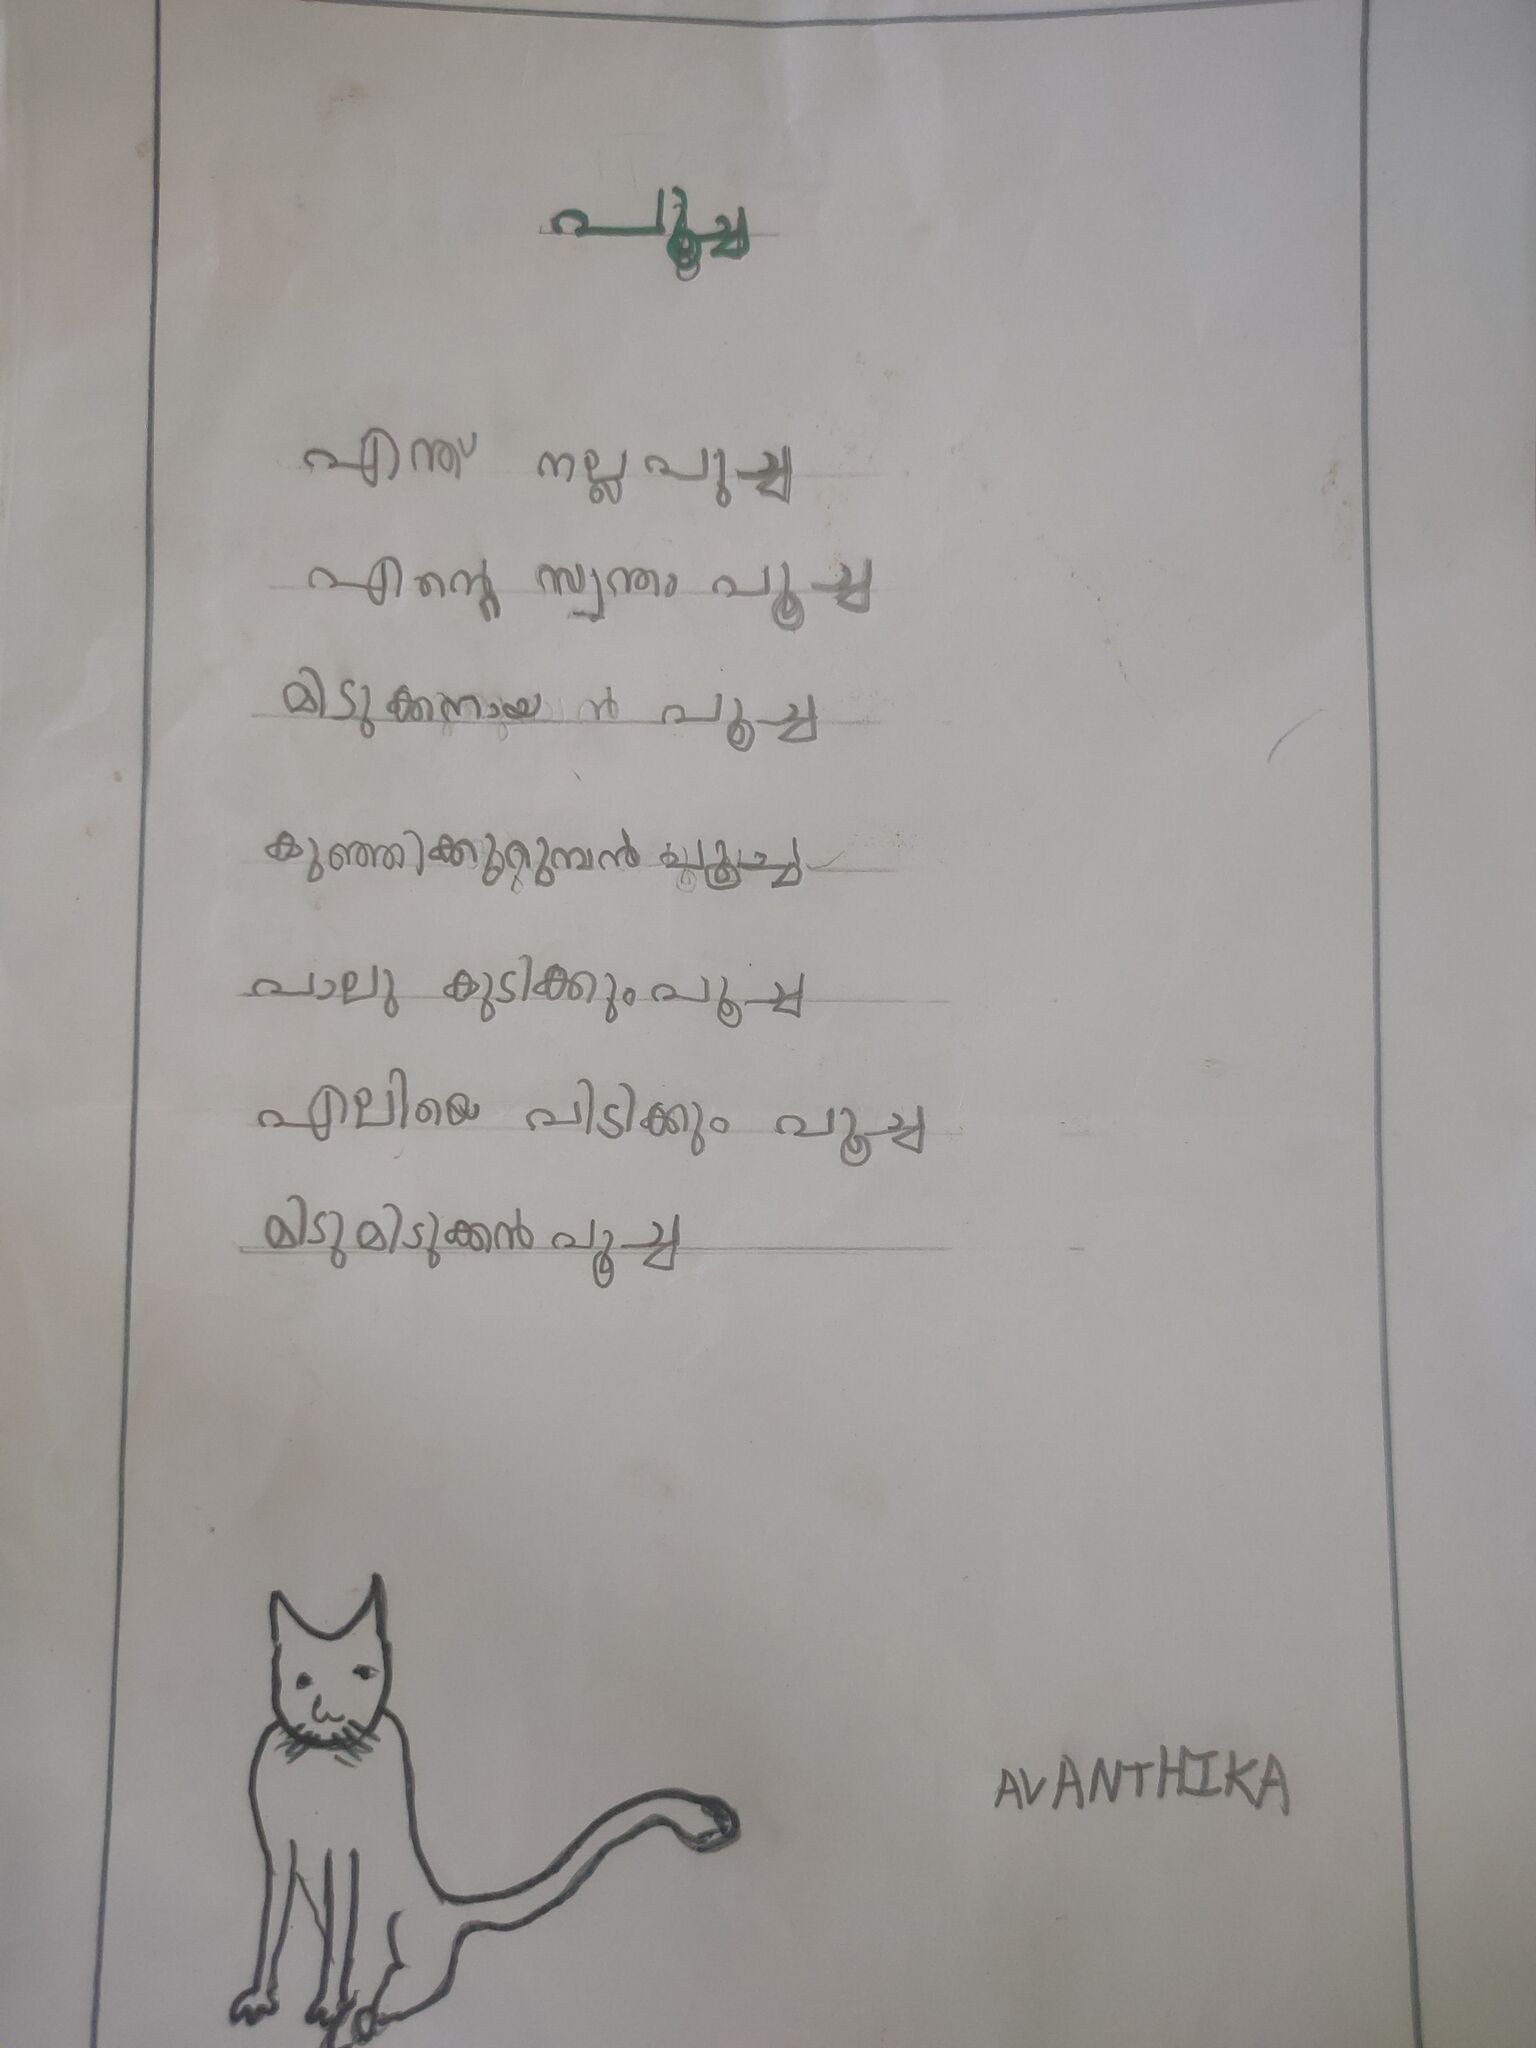 പൂച്ച
എന്ത് നല്ല പുച്ച
എന്റെ സ്വന്തം പൂച്ച
മിടുക്കനായ ൻ പൂച്ച
കുഞ്ഞിക്കുറുമ്പൻ പൂച്ച
പാലു കുടിക്കും പൂച്ച
എലിയെ പിടിക്കും പൂച്ച
മിടുമിടുക്കൻ പൂച്ച
AVANTHIKA